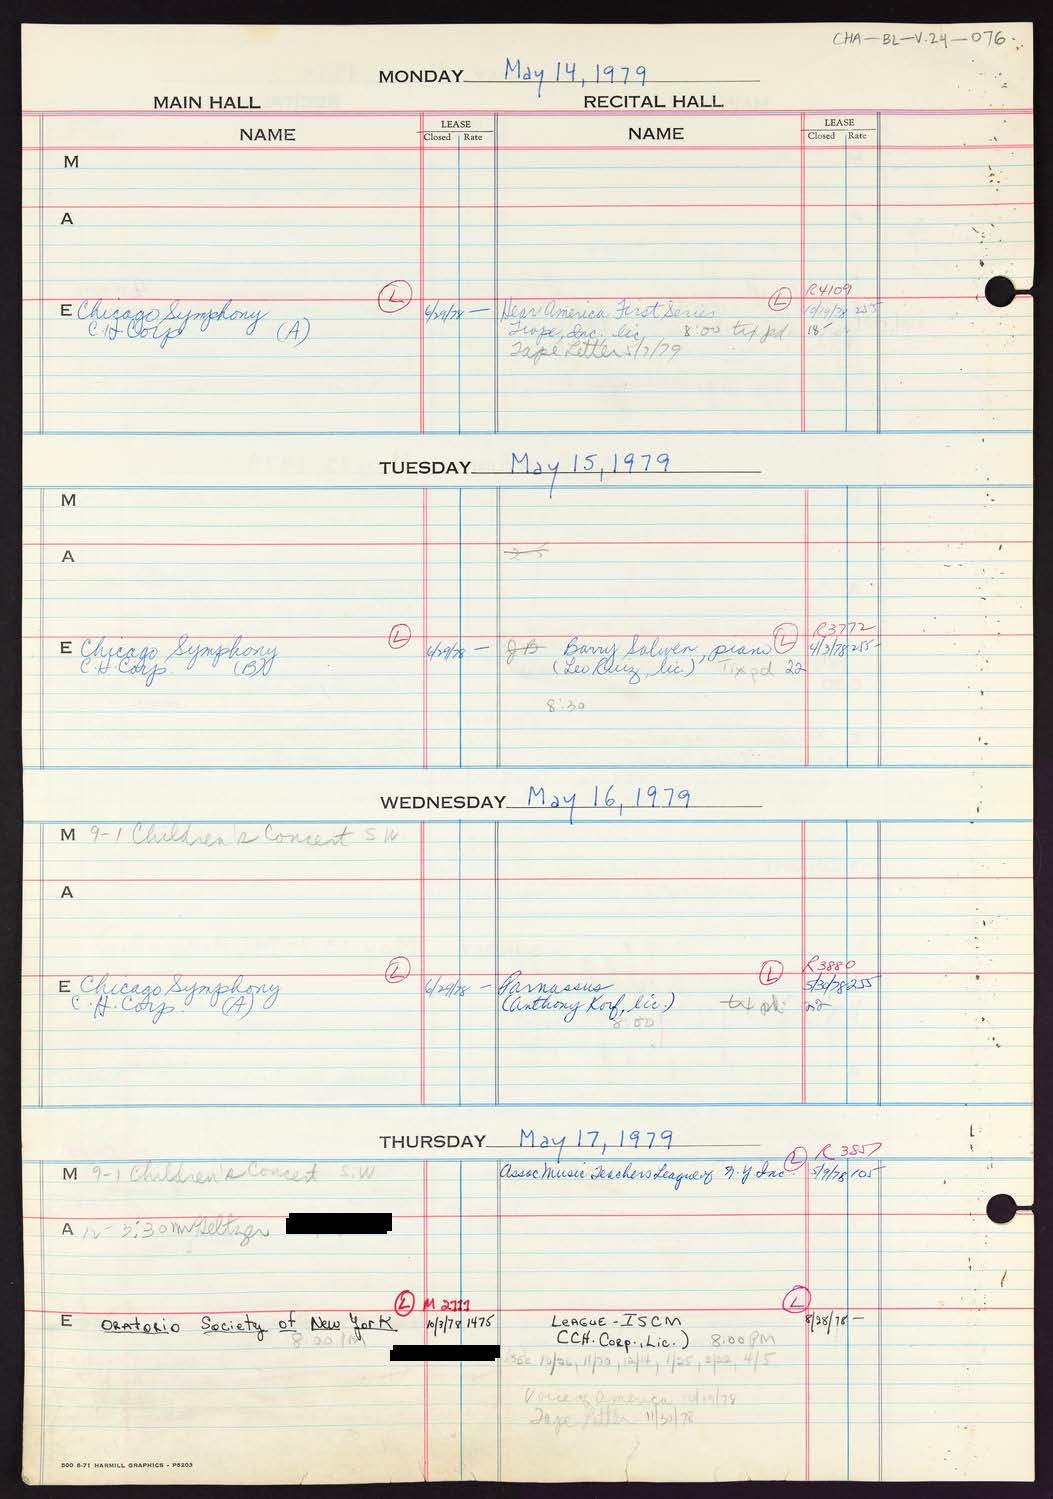 CHA-BL-V.24-076
MONDAY May 14, 1979
MAIN HALL RECITAL HALL
NAME LEASE Closed Rate NAME LEASE Closed Rate
M
A
E Chicago Symphony L 6/29/78 — Hear America First Series L R4109
C.H. Corp (A) Trope, Inc. lic. 8:00 tix pd 10/19/78 255
Tape Letter 5/7/79 185
TUESDAY May 15, 1979
M
A
E Chicago Symphony L 6/29/78 — JB Barry Salwen, piano L R3772
C.H. Corp. (B) (Leo Ruiz, lic.) Tix pd 22 4/3/78 255
8:30
WEDNESDAY May 16, 1979
M 9-1 Children's Concert S W
A
E Chicago Symphony L 6/29/78 — Parnassus L R3880
C.H. Corp. (A) (Anthony Korf, lic.) tix pd. 5/30/78 255
8:00 22
THURSDAY May 17, 1979
M 9-1 Children's Concert S.W Assoc Music Teachers League of N.Y Inc L R 3857
5/9/78 105
A 12-5:30 Mr Seltzer
E Oratorio Society of New York L M 2777 10/3/78 1475 League-ISCM L 8/28/78 —
8:00 PM CCH. Corp., Lic.) 8:00 PM
see 10/26, 11/30, 12/14, 1/25, 2/22, 4/5
Voice of America 10/19/78
Tape Letter 11/30/78
500 6-71 HARMILL GRAPHICS - P5203